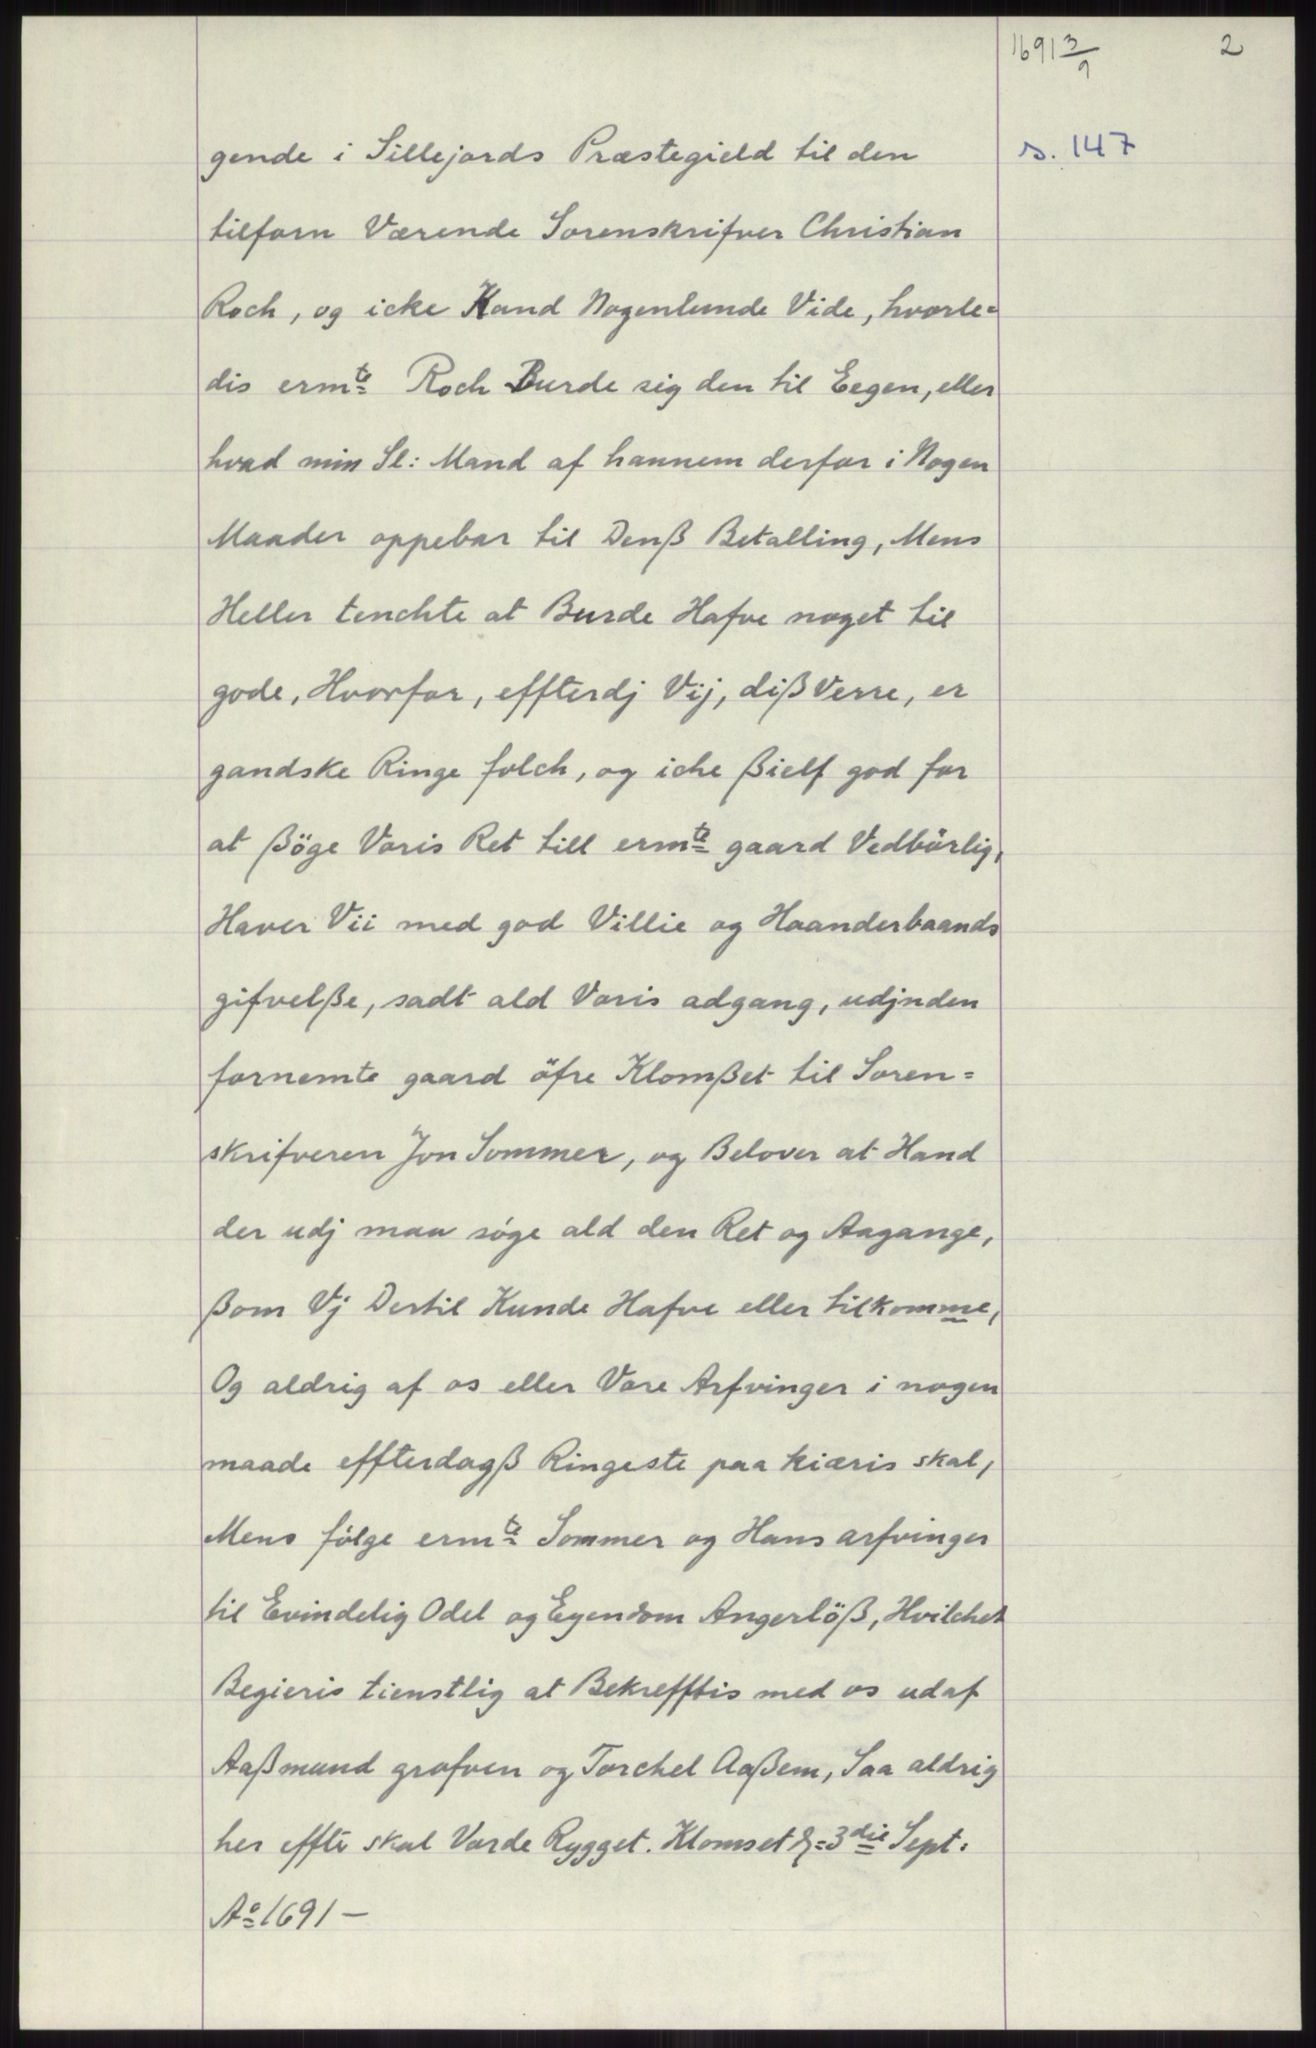 1691 3/9
2
s. 147
gende i Sillejords Præstegield til den
tilforn Værende Sorenskrifver Christian
Roch, og icke Kand Nogenlunde Vide, hvorle=
dis ermte Roch Burde sig den til Eegen, eller
hvad min Sl: Mand af hannem derfor i Nogen
Maader oppebar til Denß Betalling, Mens
Heller tenchte at Burde Hafve noget til
gode, Hvorfor, effterdj Vij, dißverre, er
gandske Ringe folch, og iche ßielf god for
at ßöge Voris Ret till ermte gaard Vedbörlig,
Haver Vii med god Villie og Haanderbaands
gifvelße, sadt ald Voris adgang, udjnden
fornemte gaard öfre Klomßet til Soren=
skrifveren Jon Sommer, og Belover at Hand
der udj maa söge ald den Ret og Aagange,
ßom Vj Dertil Kunde Hafve eller tilkomme,
Og aldrig af os eller Vore Arfvinger i nogen
maade effterdagß Ringeste paa kiæris skal,
Mens fölge ermte Sommer og Hans arfvinger
til Evindelig Odel og Eyendom Angerlöß, Hvilchet
Begieris tienstlig at Bekrefftis med os udaf
Aaßmund grafven og Torchel Aaßem, Saa aldrig
her effte skal Vorde Rygget. Klomset d: 3die Sept:
Ao 1691 —